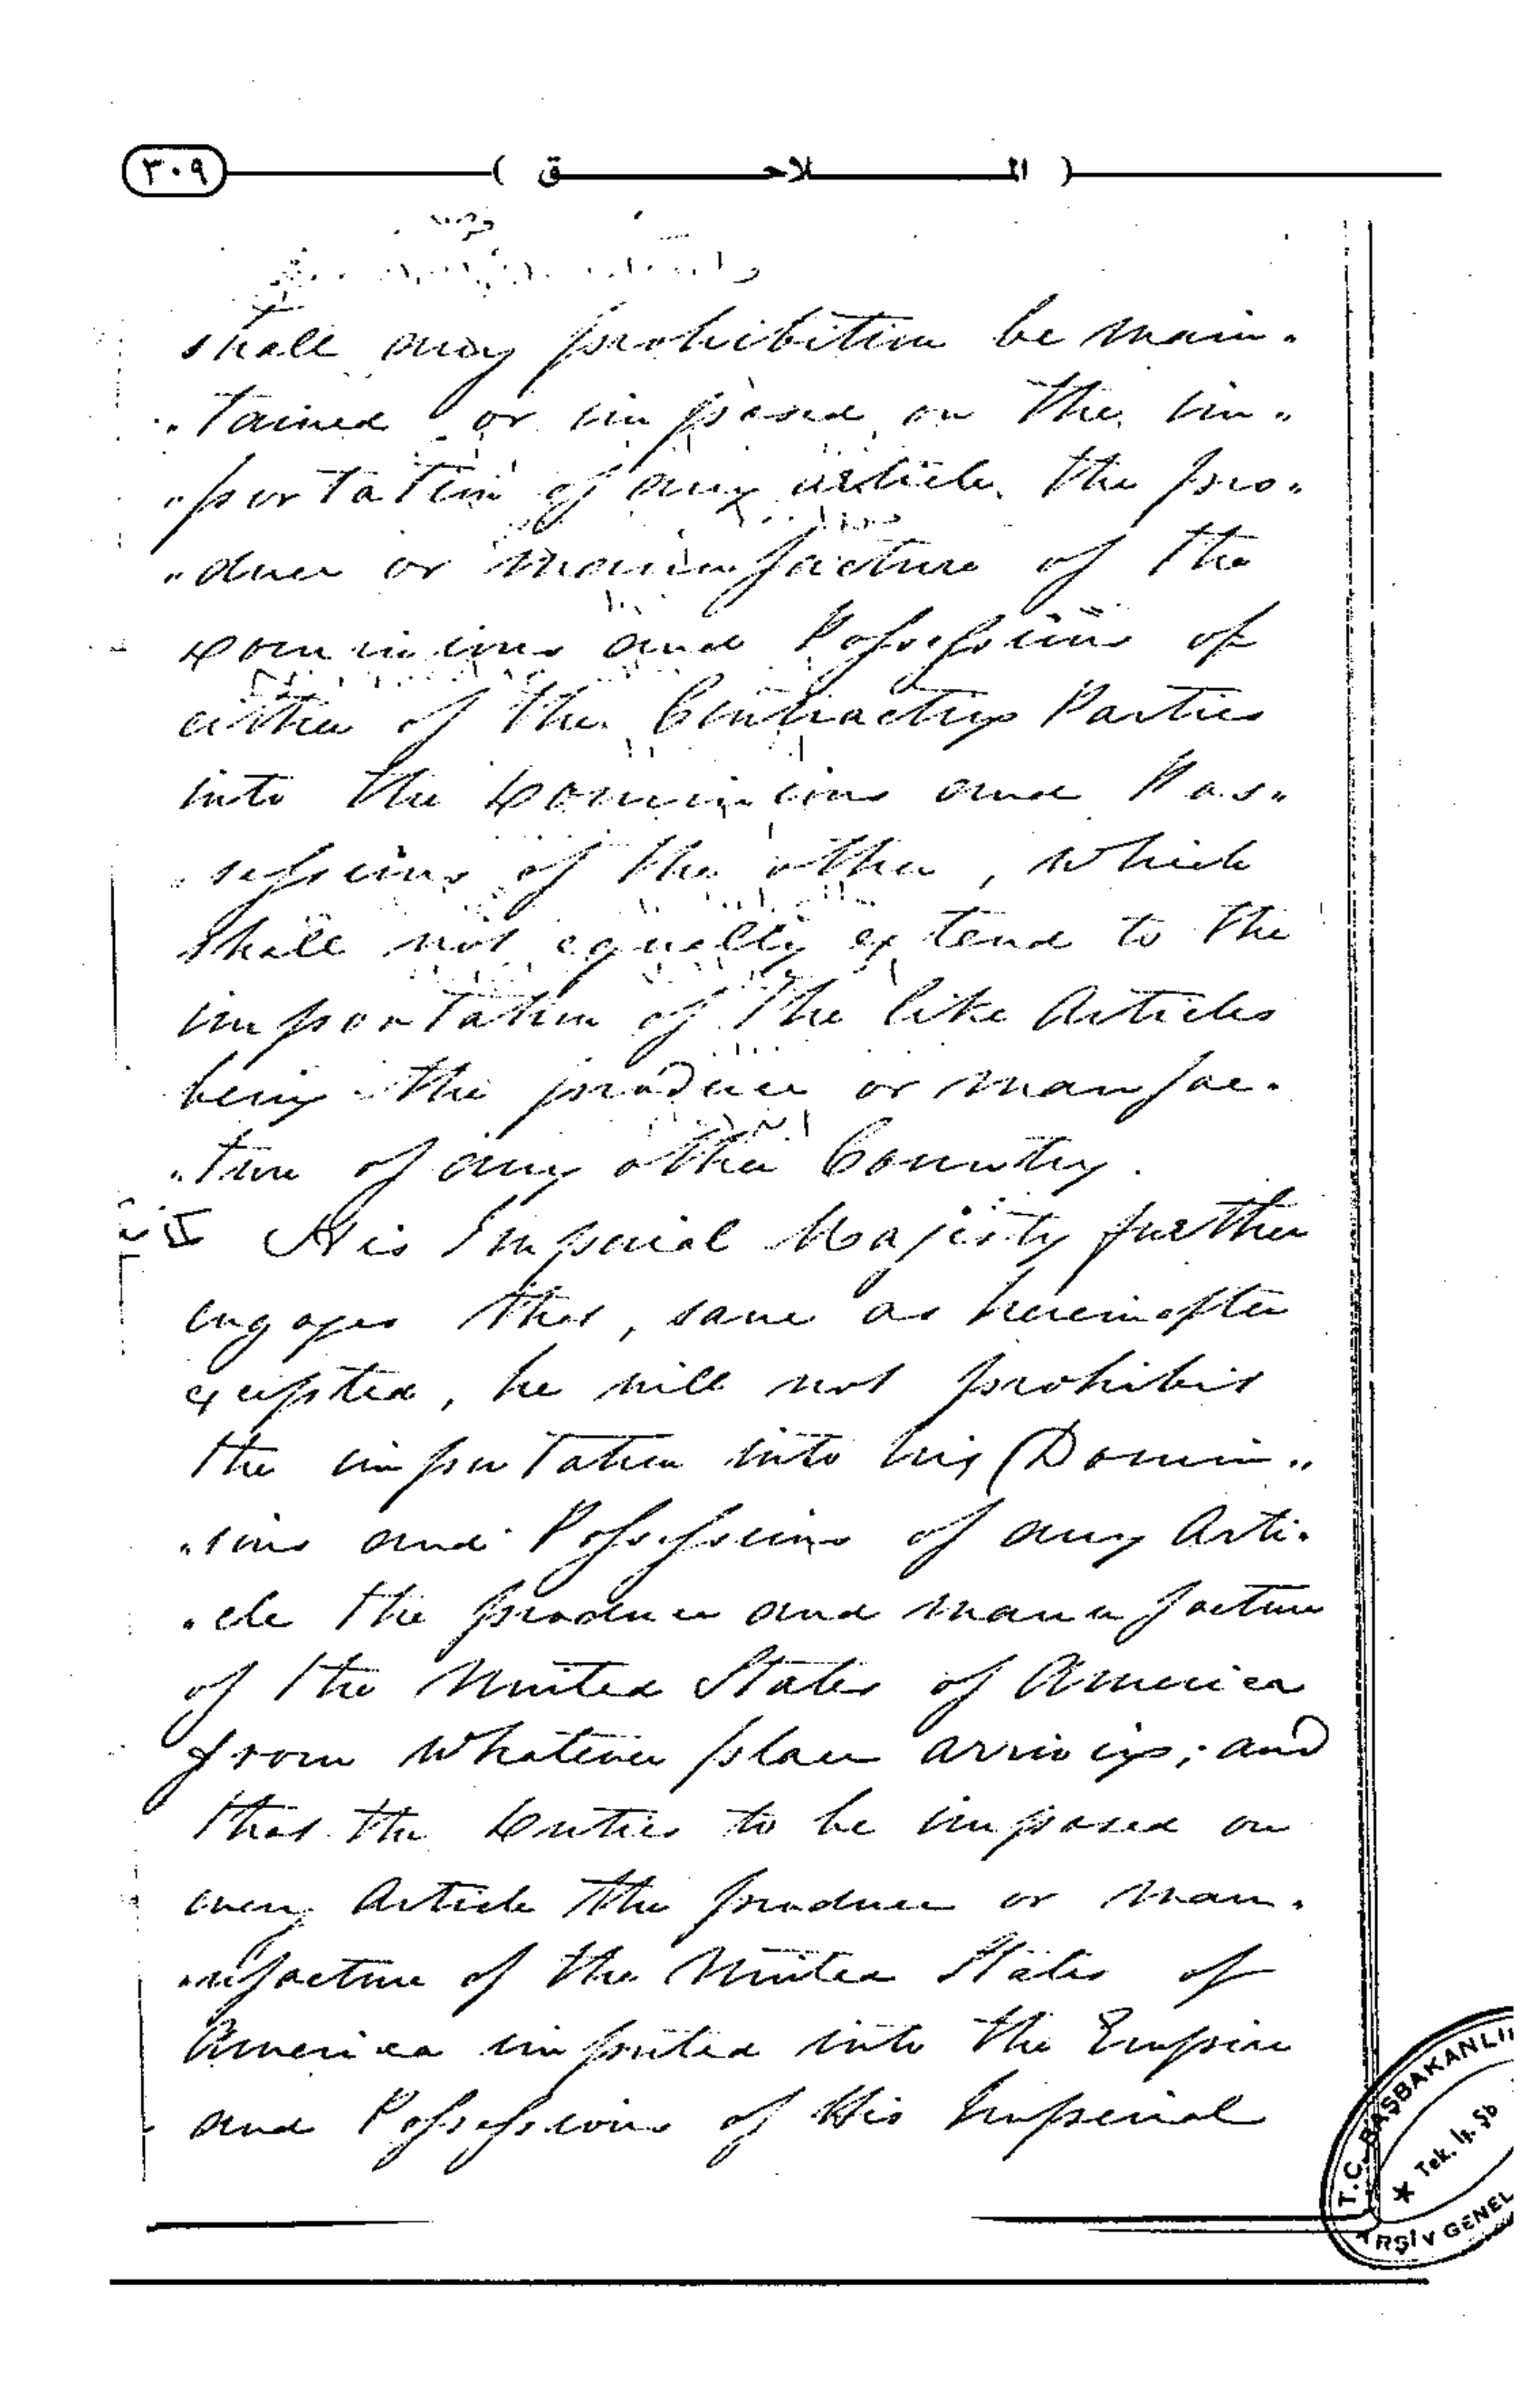 ٣٠٩ ( الملاحق )
shall any prohibition be main-
-tained or imposed on the im-
-portation of any article, the pro-
-duce or manufacture of the
Dominions and Possessions of
either of the Contracting Parties
into the Dominions and Pos-
-sessions of the other, which
shall not equally extend to the
importation of the like Articles
being the produce or manfac-
-ture of any other Country.
His Imperial Majesty further
engages that, save as hereinafter
excepted, he will not prohibit
the importation into his Domin-
-ions and Possessions of any Arti-
-cle the produce and manufacture
of the United States of America
from whatever place arriving; and
that the Duties to be imposed on
every Article the produce or man-
-ufacture of the United States of
America imported into the Empire
and Possessions of His Imperial
T.C. BAŞBAKANLI
* Tek.
ARŞİV GENEL